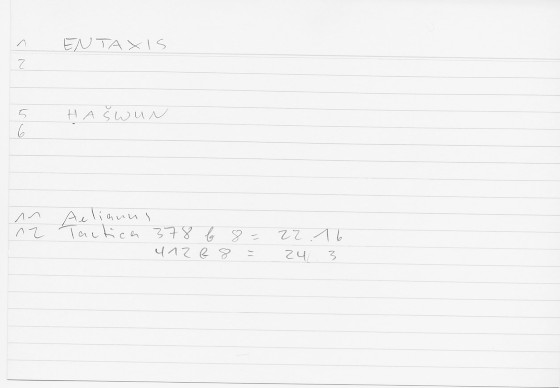 1 ENTAXIS
2
5 ḤAŠWUN
6
11 Aelianus
12 Tactica 378 b 8 = 22.16
412 b 8 = 24, 3